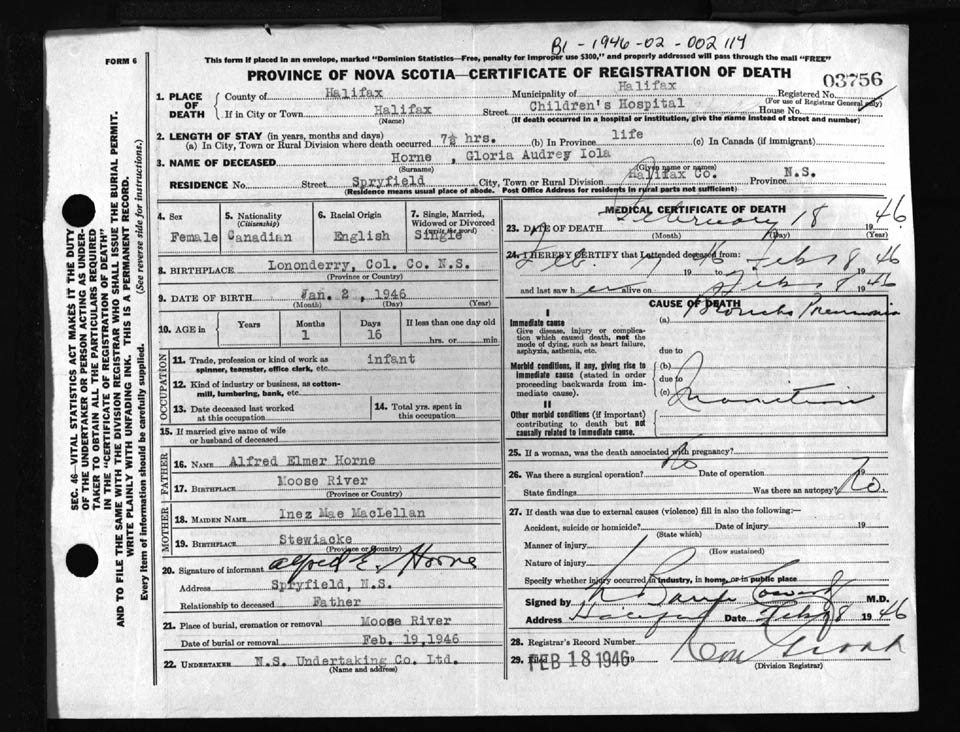 B1 - 1946-02 - 002114
FORM 6
This form if placed in an envelope, marked "Dominion Statistics—Free, penalty for improper use $300," and properly addressed will pass through the mail "FREE"
PROVINCE OF NOVA SCOTIA—CERTIFICATE OF REGISTRATION OF DEATH
03756
1. PLACE OF DEATH
County of Halifax Municipality of Halifax Registered No.
(For use of Registrar General only)
If in City or Town Halifax Street Children's Hospital House No.
(Name) (If death occurred in a hospital or institution, give the name instead of street and number)
2. LENGTH OF STAY (in years, months and days)
(a) In City, Town or Rural Division where death occurred 7½ hrs. (b) In Province life (c) In Canada (if immigrant)
3. NAME OF DECEASED Horne , Gloria Audrey Iola
(Surname) (Given name or names)
RESIDENCE No. Street Spryfield City, Town or Rural Division Halifax Co. Province N.S.
(Residence means usual place of abode. Post Office Address for residents in rural parts not sufficient)
4. Sex
Female
5. Nationality
(Citizenship)
Canadian
6. Racial Origin
English
7. Single, Married, Widowed or Divorced
(write the word)
Single
8. BIRTHPLACE Lononderry, Col. Co. N.S.
(Province or Country)
9. DATE OF BIRTH Jan. 2, 1946
(Month) (Day) (Year)
10. AGE in Years Months Days If less than one day old
1 16 hrs. or min.
OCCUPATION
11. Trade, profession or kind of work as infant
spinner, teamster, office clerk, etc.
12. Kind of industry or business, as cotton-
mill, lumbering, bank, etc.
13. Date deceased last worked
at this occupation
14. Total yrs. spent in
this occupation
15. If married give name of wife
or husband of deceased
FATHER
16. NAME Alfred Elmer Horne
17. BIRTHPLACE Moose River
(Province or Country)
MOTHER
18. MAIDEN NAME Inez Mae MacLellan
19. BIRTHPLACE Stewiacke
(Province or Country)
20. Signature of informant Alfred E. Horne
Address Spryfield, N.S.
Relationship to deceased Father
21. Place of burial, cremation or removal Moose River
Date of burial or removal Feb. 19, 1946
22. UNDERTAKER N.S. Undertaking Co. Ltd.
(Name and address)
MEDICAL CERTIFICATE OF DEATH
23. DATE OF DEATH February 18 1946
(Month) (Day) (Year)
24. I HEREBY CERTIFY that I attended deceased from:
Feb. 17 1946 to Feb 18 1946
and last saw her alive on Feb 18 1946
CAUSE OF DEATH
I
Immediate cause (a) Broncho Pneumonia
Give disease, injury or complica-
tion which caused death, not the
mode of dying, such as heart failure,
asphyxia, asthenia, etc.
due to
Morbid conditions, if any, giving rise to (b)
immediate cause (stated in order due to
proceeding backwards from im- (c) Inanition
mediate cause).
II
Other morbid conditions (if important)
contributing to death but not
causally related to immediate cause.
25. If a woman, was the death associated with pregnancy?
26. Was there a surgical operation? No Date of operation 19
State findings Was there an autopsy? No
27. If death was due to external causes (violence) fill in also the following:—
Accident, suicide or homicide? Date of injury 19
(State which)
Manner of injury
(How sustained)
Nature of injury
Specify whether injury occurred in industry, in home, or in public place
Signed by M.D.
Address Halifax Date Feb 18 1946
28. Registrar's Record Number
29. Filed FEB 18 1946 19
(Division Registrar)
SEC. 46—VITAL STATISTICS ACT MAKES IT THE DUTY
OF THE UNDERTAKER OR PERSON ACTING AS UNDER-
TAKER TO OBTAIN ALL THE PARTICULARS REQUIRED
IN THE "CERTIFICATE OF REGISTRATION OF DEATH"
AND TO FILE THE SAME WITH THE DIVISION REGISTRAR WHO SHALL ISSUE THE BURIAL PERMIT.
WRITE PLAINLY WITH UNFADING INK. THIS IS A PERMANENT RECORD.
Every item of information should be carefully supplied. (See reverse side for instructions.)